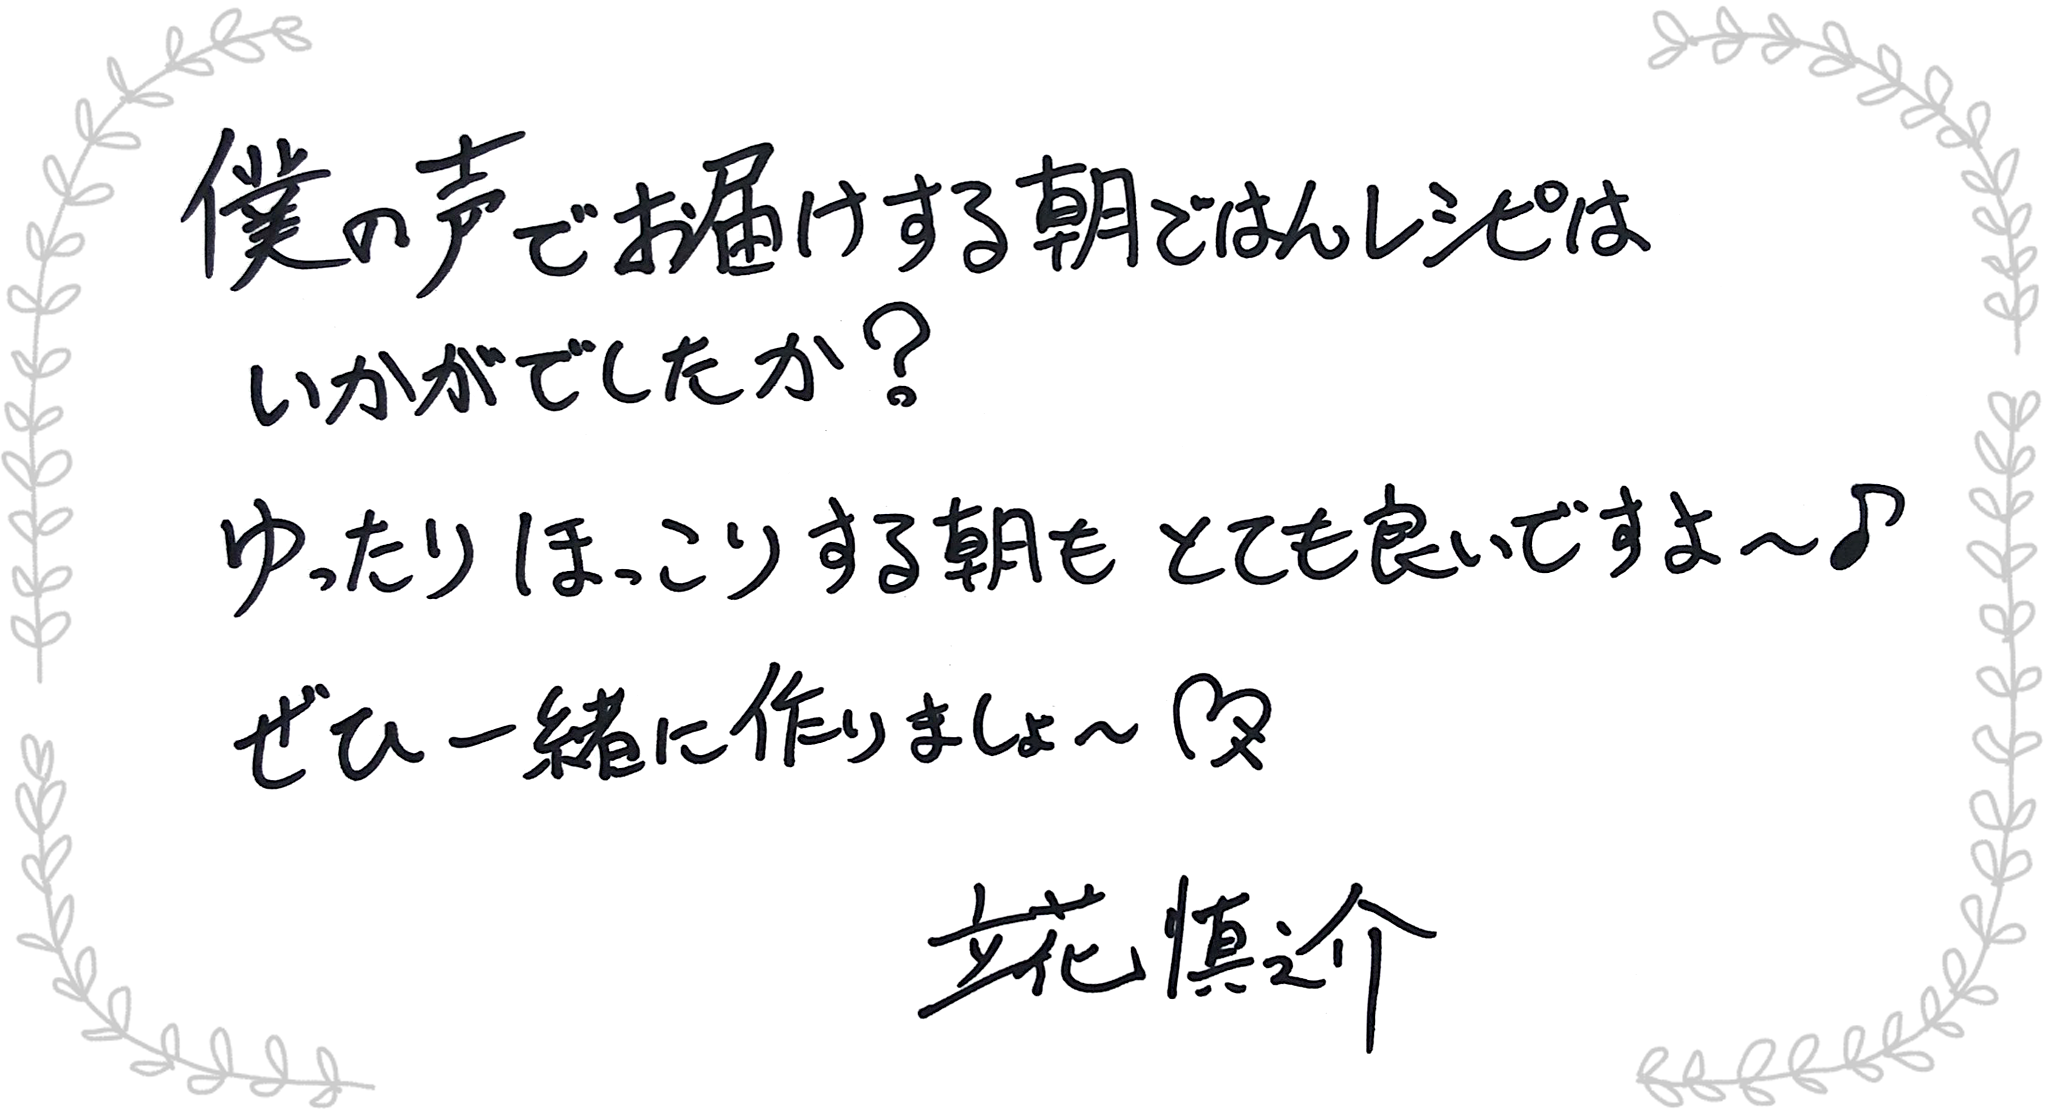 僕の声でお届けする朝ごはんレシピは
いかがでしたか?
ゆったりほっこりする朝も とても良いですよ〜♪
ぜひ一緒に作りましょ〜♡
立花慎之介